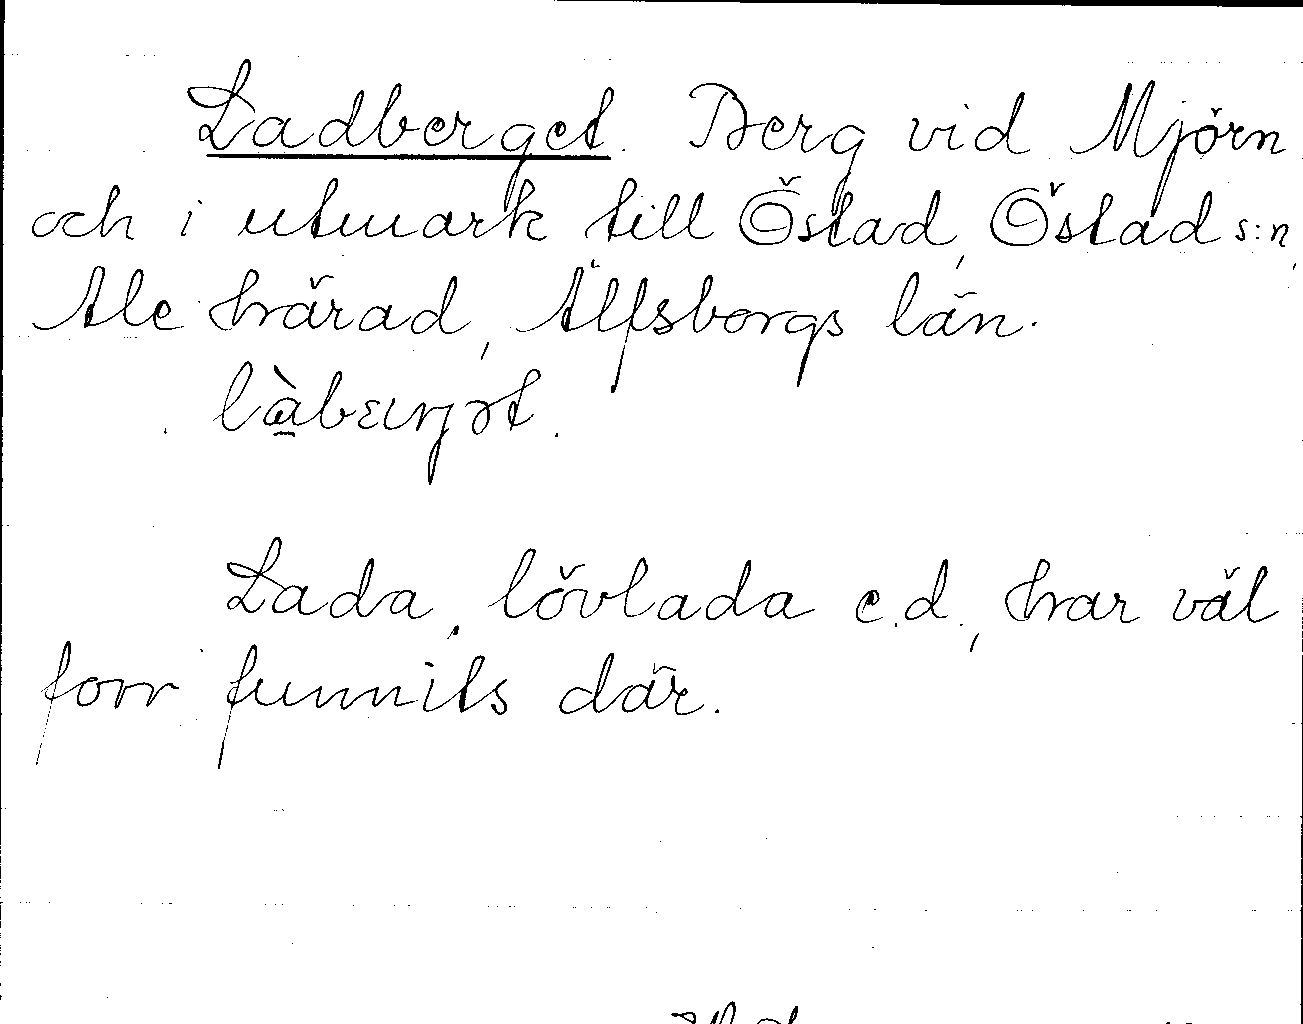 Ladberget. Berg vid Mjörn
och i utmark till Östad, Östad s:n,
Ale härad, Älfsborgs län.

Lada, lövlada e.d., har väl
förr funnits där.